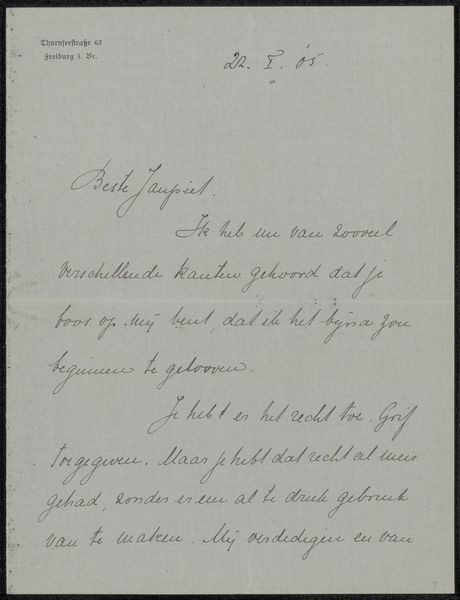 Thurnseestraße 63
Freiburg i. Br.
22. I. '05.
Beste Janpiet.
Ik heb nu van zooveel
verschillende kanten gehoord dat je
boos op mij bent, dat ik het bijna zou
beginnen te gelooven.
Je hebt er het recht toe. Grif
toegegeven. Maar je hebt dat recht al meer
gehad, zonder er een al te druk gebruik
van te maken. Mij verdedigen en van